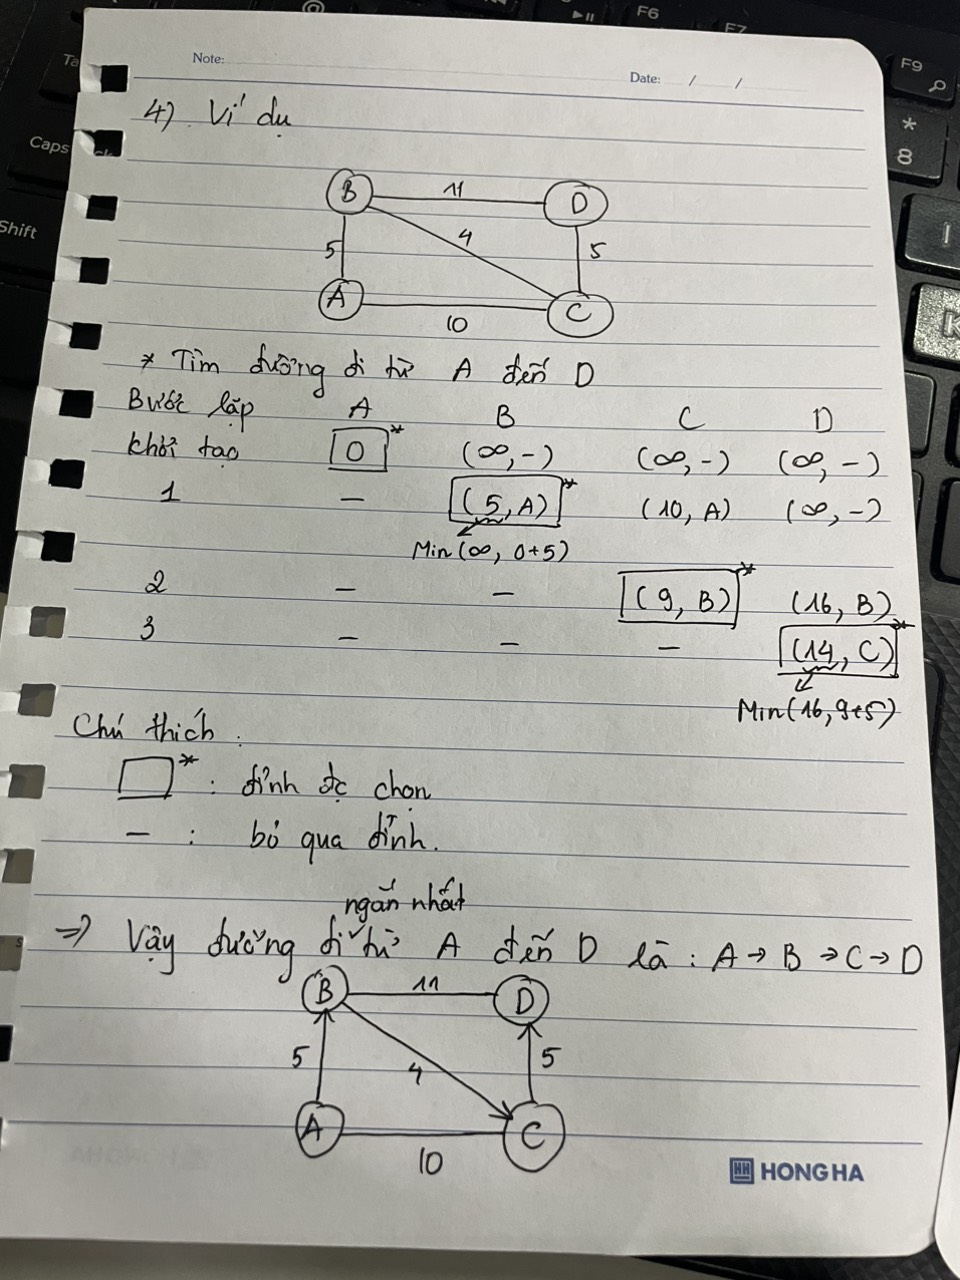 Note:
Date: / /
4) Ví dụ
B 11 D
5 4 5
A 10 C
* Tìm đường đi từ A đến D
Bước lặp A B C D
khởi tạo 0* (∞,-) (∞,-) (∞,-)
1 – (5,A)* (10,A) (∞,-)
Min(∞, 0+5)
2 – – (9,B)* (16,B)
3 – – – (14,C)*
Min(16,9+5)
Chú thích:
* : đỉnh đc chọn
– : bỏ qua đỉnh.
ngắn nhất
⇒ Vậy đường đi từ A đến D là : A → B → C → D
B 11 D
5 4 5
A 10 C
HONG HA
Caps
Shift
F6
F7
F9
*
8
I
K
Ta